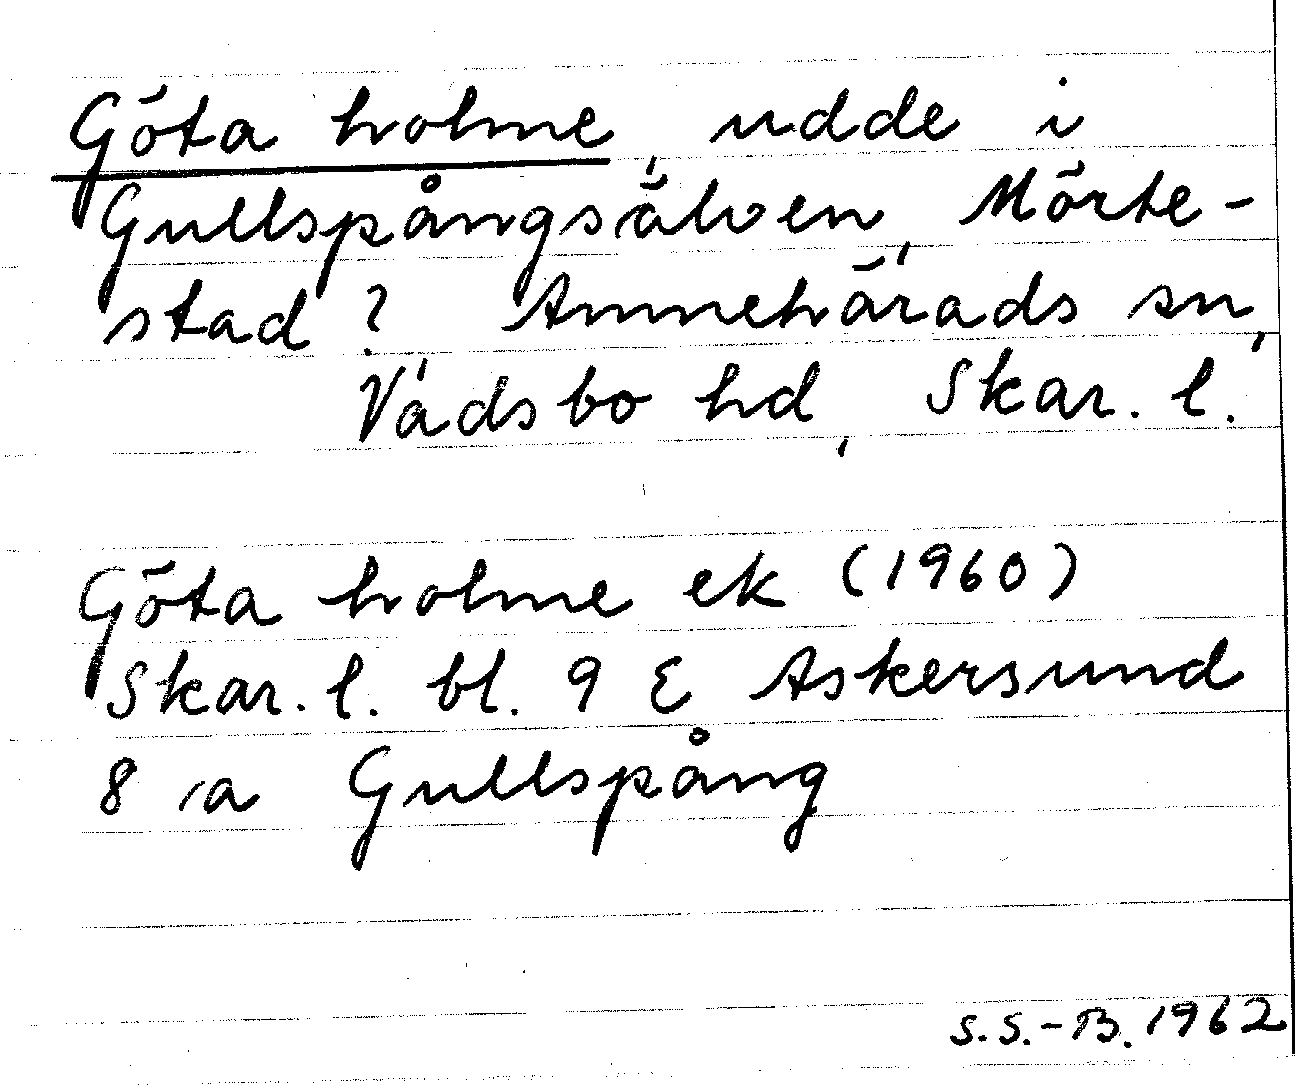 Göta holme, udde i
Gullspångsälven, Mörte-
stad? Amnehärads sn,
Vadsbo hd, Skar. l.
Göta holme ek (1960)
Skar. l. bl. 9 E Askersund
8 a Gullspång
S.S.-B. 1962